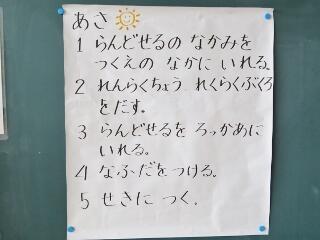 あさ
1 らんどせるの なかみを
つくえの なかに いれる。
2 れんらくちょう れくらくぶくろ
をだす。
3 らんどせるを ろっかあに
いれる。
4 なふだを つける。
5 せきに つく。